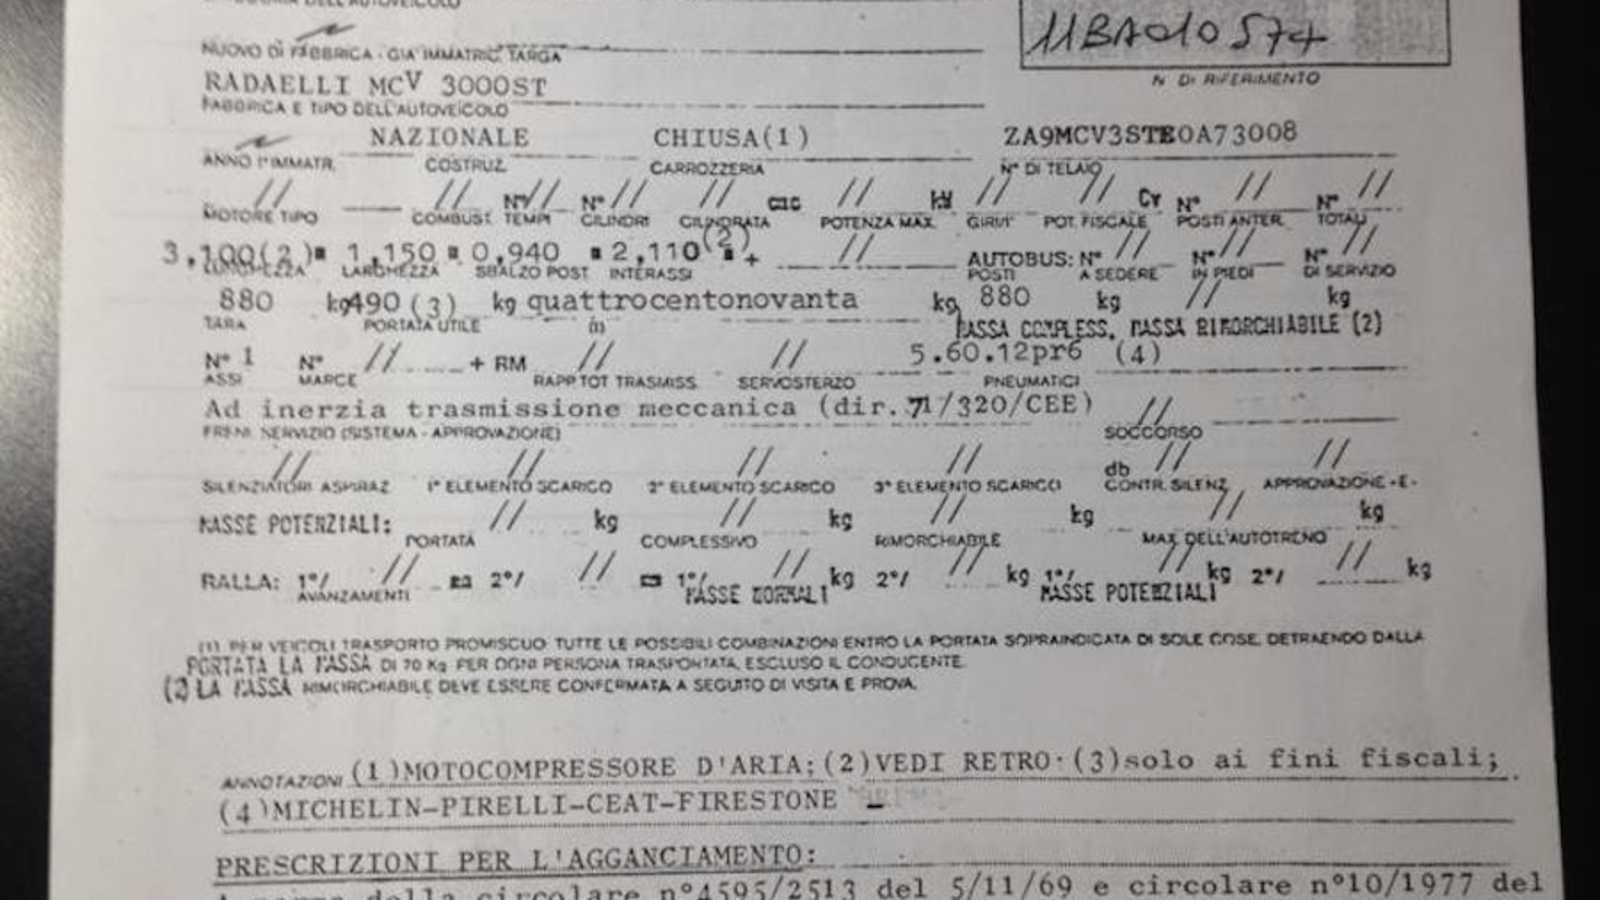 11BA010574
NUOVO DI FABBRICA - GIA' IMMATRIC. TARGA
N° DI RIFERIMENTO
RADAELLI MCV 3000ST
FABBRICA E TIPO DELL'AUTOVEICOLO
NAZIONALE CHIUSA(1) ZA9MCV3STE0A73008
ANNO 1ª IMMATR. COSTRUZ. CARROZZERIA N° DI TELAIO
// // N° // N° // // cmc // kW // // CV N° // N° //
MOTORE TIPO COMBUST. TEMPI CILINDRI CILINDRATA POTENZA MAX. GIRI/1' POT. FISCALE POSTI ANTER. TOTALI
3,100(2)m 1,150 m 0,940 m 2,110(2) m + // AUTOBUS: N° // N° // N° //
LUNGHEZZA LARGHEZZA SBALZO POST INTERASSI POSTI A SEDERE IN PIEDI DI SERVIZIO
880 kg 490 (3) kg quattrocentonovanta kg 880 kg // kg
TARA PORTATA UTILE in MASSA COMPLESS. MASSA RIMORCHIABILE (2)
N° 1 N° // + RM // // 5.60.12pr6 (4)
ASSI MARCE RAPP. TOT TRASMISS. SERVOSTERZO PNEUMATICI
Ad inerzia trasmissione meccanica (dir.71/320/CEE) //
FRENI SERVIZIO (SISTEMA - APPROVAZIONE) SOCCORSO
// // // // db // //
SILENZIATORI ASPIRAZ 1° ELEMENTO SCARICO 2° ELEMENTO SCARICO 3° ELEMENTO SCARICO CONTR. SILENZ. APPROVAZIONE -E-
MASSE POTENZIALI: // kg // kg // kg // kg
PORTATA COMPLESSIVO RIMORCHIABILE MAX. DELL'AUTOTRENO
RALLA: 1°/ // 2°/ // 1°/ // kg 2°/ // kg 1°/ // kg 2°/ // kg
AVANZAMENTI MASSE NORMALI MASSE POTENZIALI
(1) PER VEICOLI TRASPORTO PROMISCUO TUTTE LE POSSIBILI COMBINAZIONI ENTRO LA PORTATA SOPRAINDICATA DI SOLE COSE, DETRAENDO DALLA
PORTATA LA MASSA DI 70 Kg PER OGNI PERSONA TRASPORTATA, ESCLUSO IL CONDUCENTE.
(2) LA MASSA RIMORCHIABILE DEVE ESSERE CONFERMATA A SEGUITO DI VISITA E PROVA.
ANNOTAZIONI (1)MOTOCOMPRESSORE D'ARIA;(2)VEDI RETRO·(3)solo ai fini fiscali;
(4)MICHELIN-PIRELLI-CEAT-FIRESTONE
PRESCRIZIONI PER L'AGGANCIAMENTO:
della circolare n°4595/2513 del 5/11/69 e circolare n°10/1977 del